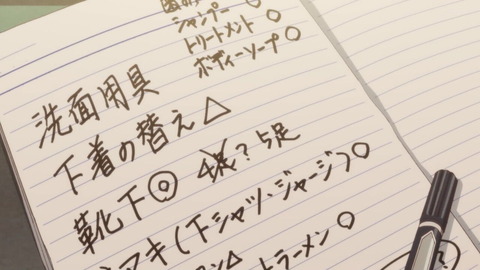 シャンプー○
トリートメント○
ボディーソープ○
洗面用具
下着の替え△
靴下◎ ? 5足
マキ(下シャツ、ジャージ)○
ラーメン○